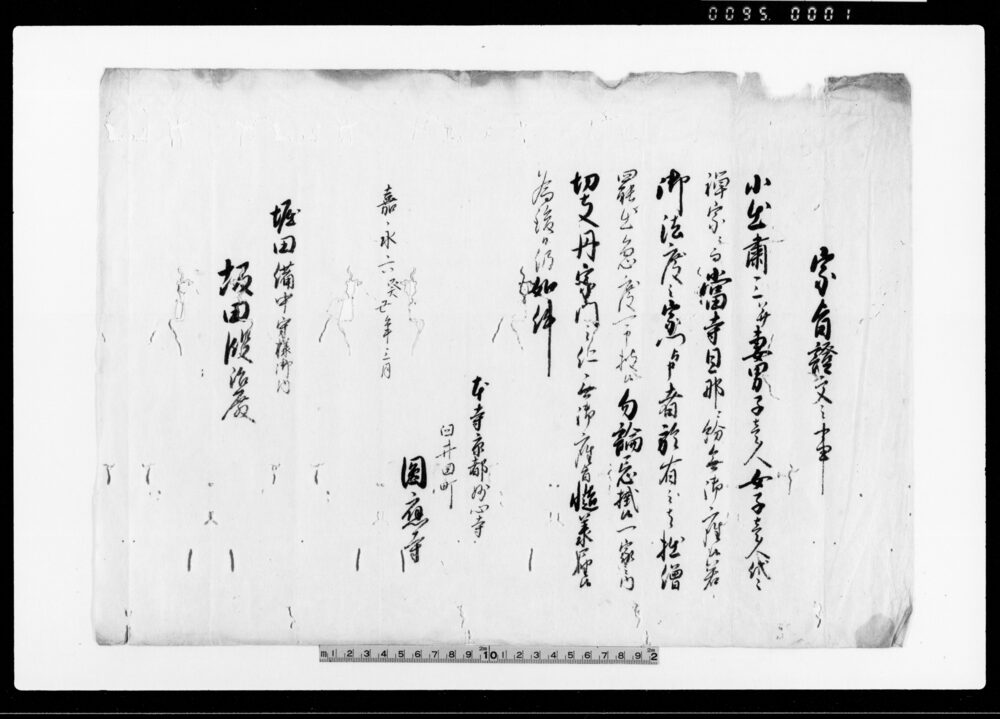 0095. 0001
宗旨證文之事
小出肅三并妻男子壱人女子壱人代々
禅宗ニ而當寺旦那ニ紛無御座候若
御法度之宗旨者於有之者拙僧
罷出急度可披候勿論忌掛候一家之内
切支丹宗門之仁無御座旨慥ニ承届候
為後日仍如件
嘉永六癸丑年三月
本寺京都妙心寺
臼井田町
圓應寺
堀田備中守様御内
坂田順治殿
m 1 2 3 4 5 6 7 8 9 10 1 2 3 4 5 6 7 8 9 2